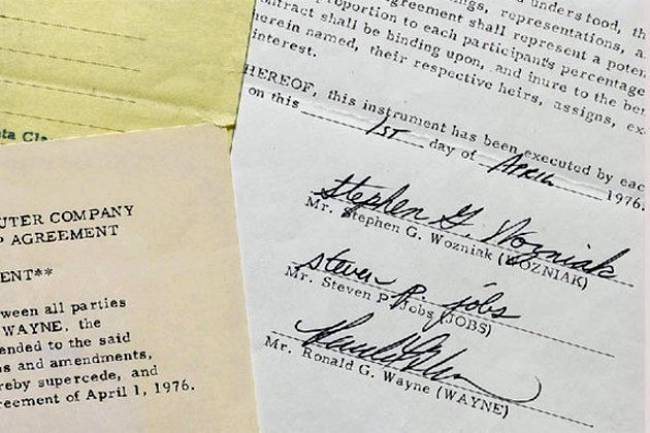 ta Cla
UTER COMPANY
P AGREEMENT
ENT**
ween all parties
WAYNE, the
ended to the said
s and amendments,
reby supercede, and
reement of April 1, 1976.
ngs, representations, a
understood, th
proportion to each
agreement shall represent a poten
ontract shall be binding upon, and inure to the ben
participant's percentage
herein named, their respective heirs, assigns, ex
interest.
HEREOF, this instrument has been executed by eac
on this 1ST day of APRIL 1976.
Stephen G. Wozniak
Mr. Stephen G. Wozniak (WOZNIAK)
steven p. jobs
Mr. Steven P. Jobs (JOBS)
Mr. Ronald G. Wayne (WAYNE)